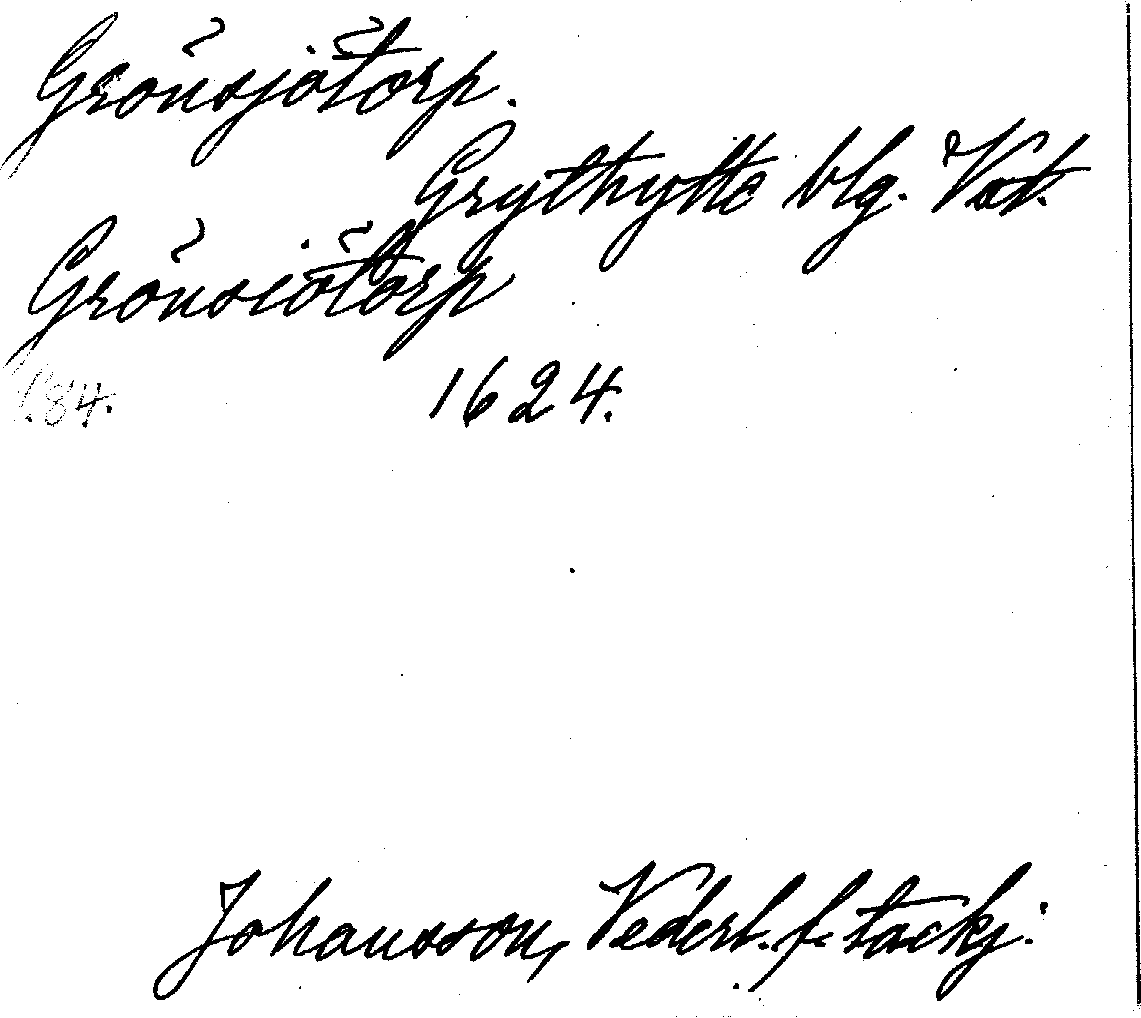 Grönsjötorp.
Grythytte blg. Vstm.
Grönsiötorp
s. 84. 1624.
Johansson, Vederl. f. tackj: